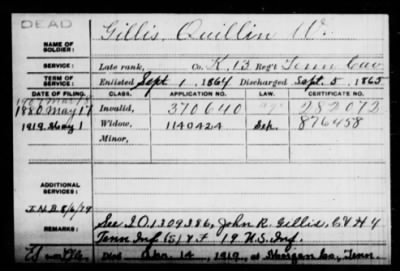 DEAD
Gillis, Quillin W.
NAME OF SOLDIER:
SERVICE: Late rank, Co. K, 13 Reg't Tenn Cav
TERM OF SERVICE: Enlisted Sept 1, 1864 Discharged Sept. 5, 1865
DATE OF FILING. CLASS. APPLICATION NO. LAW. CERTIFICATE NO.
1880 May 17 Invalid, 370640 282072
1919 May 1 Widow, 1140424 Gen. 876458
Minor,
ADDITIONAL SERVICES:
REMARKS: See I.O. 1309386, John R. Gillis, C & H 4
Tenn Inf (S) & F 19 U.S. Inf.
Died 14, 1919, at Morgan Co., Tenn.